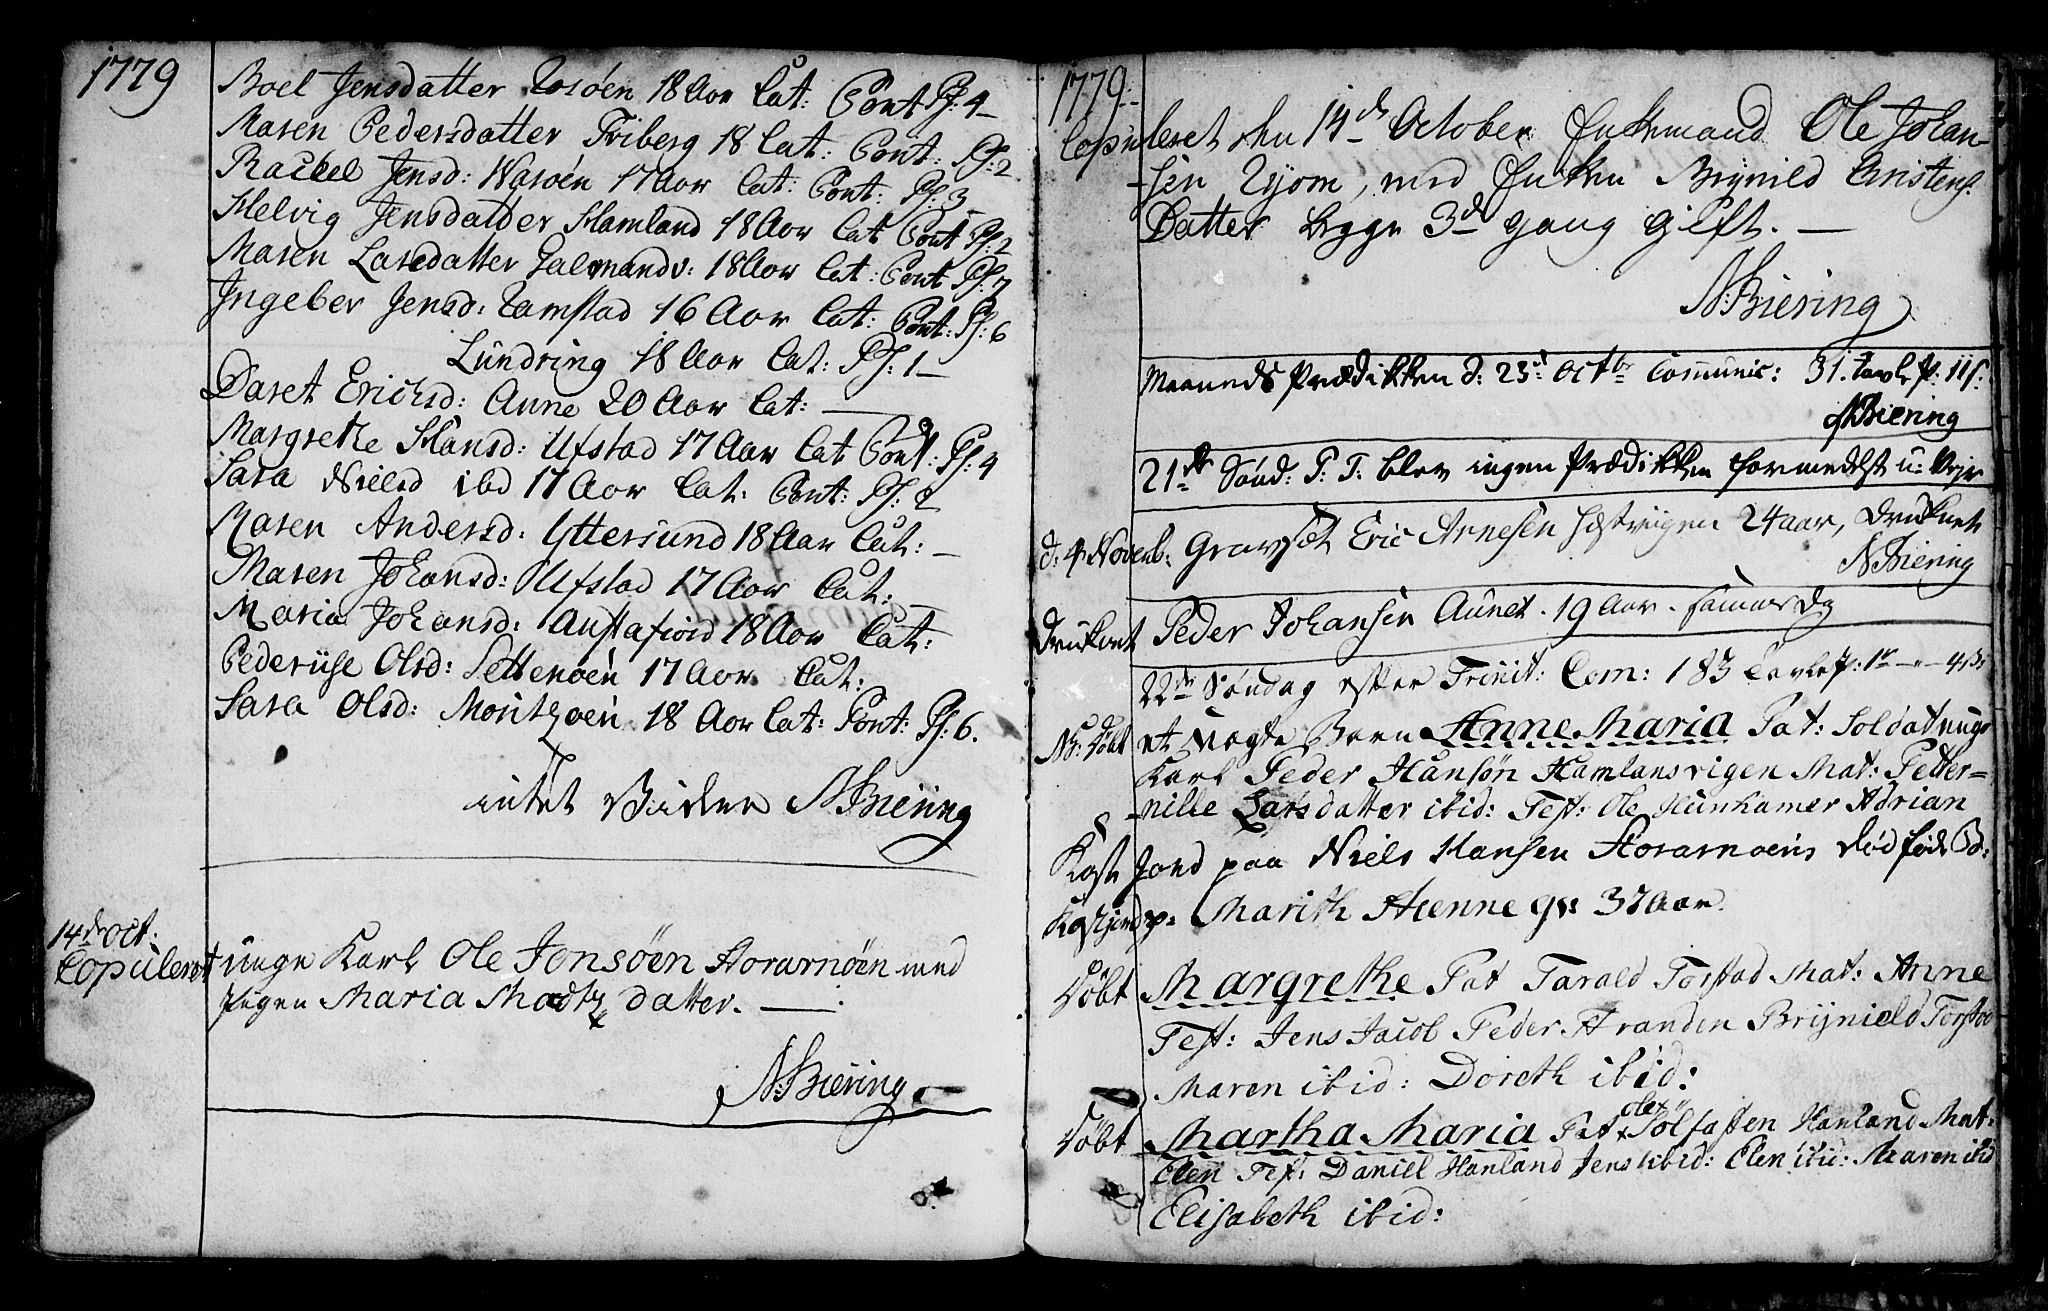 1779
Boel Jensdatter Rosøen 18 Aar Cat: Pont Ps: 4
Maren Pedersdatter Friberg 18 Cat: Pont: Ps: 2
Rachel Jensd: Warøen 17 Aar Cat: Pont: Ps: 3
Helvig Jensdatter Hamland 18 Aar Cat Pont Ps: 2
Maren Larsdatter 18 Aar Cat: Pont Ps: 7
Ingeber Jensd: Ramstad 16 Aar Cat: Pont: Ps: 6
Lundring 18 Aar Cat: Ps: 1
Daret Erichsd: Aune 20 Aar Cat:
Margrethe Hansd: Ufstad 17 Aar Cat Pont: Ps: 4
Sara Nielsd ibd 17 Aar Cat: Pont: Ps: 2
Maren Andersd: Yttersund 18 Aar Cat:
Maren Johansd: Ufstad 17 Aar Cat:
Maria Johansd: Austafiord 18 Aar Cat:
Pedernise Olsd: Settenøen 17 Aar Cat:
Sara Olsd: Moritzøen 18 Aar Cat: Pont: Ps: 6.
intet Viidere N Biering
14de Oct:
Copuleret unge Karl Ole Jonsøen Horsnøen med
Pigen Maria Madtz datter.
N: Biering
1779:
Copuleret den 14de October Enkemand Ole Johan-
-sen Ryom, med Enken Brynild Cristens:
Datter begge 3de gang gift.
N: Biering
Maaneds Prædikken d: 23d Octbr Communic: 31. Tavle P: 11s.
N Biering
21de Sønd: P. T. blev ingen Prædikken formedelst u: Vejr
d: 4 Novemb: Gravsat Eric Arnesen 24 aar, Druknet
N Biering
Druknet Peder Johansen Aunet. 19 Aar. samme Dg
22de Søndag efter Trinit: Com: 183 Tavle P: 1r — 4s
NB: Døbt et Uægte Barn Anne Maria Pat: Soldat unge
Karl Peder Hansøn Hamlansvigen Mat: Petter=
-nille Larsdatter ibid: Test: Ole Hunhamer Adrian
Kast Jord paa Niels Hansen Horsnøens død føde B:
Kast Jord p: Marith Aunne gs: 37 Aar.
Døbt Margrethe Pat Tarald Torstad Mat: Anne
Test: Jens Jacob Peder Stranden Brijnield Torstad
Maren ibid: Doreth ibid:
Døbt Martha Maria Pat Ole Solfasten Hanland Mat:
Elen Test: Daniel Hanland Jens ibid: Elen ibid: Maren ibid
Elisabeth ibid: